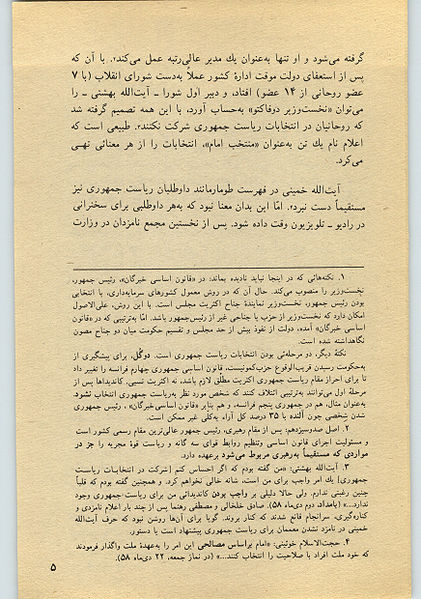 گرفته می‌شود و او تنها به‌عنوان یك مدیر عالی‌رتبه عمل می‌کند۲. با آن که
پس از استعفای دولت موقت ادارهٔ کشور عملاً به‌دست شورای انقلاب (با ۷
عضو روحانی از ۱۴ عضو) افتاد، و دبیر اول شورا ـ آیت‌الله بهشتی ـ را
می‌توان «نخست‌وزیر دوفاکتو» به‌حساب آورد، با این همه تصمیم گرفته شد
که روحانیان در انتخابات ریاست جمهوری شرکت نکنند۳. طبیعی است که
اعلام نام یك تن به‌عنوان «منتخب امام»، انتخابات را از هر معنائی تهی
می‌کرد.
آیت‌الله خمینی در فهرست طومارمانند داوطلبان ریاست جمهوری نیز
مستقیماً دست نبرد۴. امّا این بدان معنا نبود که به‌هر داوطلبی برای سخنرانی
در رادیو ـ تلویزیون وقت داده شود. پس از نخستین مجمع نامزدان در وزارت
۱. نکته‌هائی که در اینجا نباید نادیده بماند: در «قانون اساسی خبرگان»، رئیس جمهور،
نخست‌وزیر را منصوب می‌کند. حال آن که در روش معمول کشورهای سرمایه‌داری، با انتخابی
بودن رئیس جمهور، نخست‌وزیر نمایندهٔ جناح اکثریت مجلس است. با این روش، علی‌الاصول
امکان دارد که نخست‌وزیر از حزب یا جناحی غیر از رئیس‌جمهور باشد. امّا به‌ترتیبی که در «قانون
اساسی خبرگان» آمده، دولت از نفوذ بیش از حد مجلس و تقسیم حکومت میان دو جناح مصون
نگاهداشته شده است.
نکتهٔ دیگر، دو مرحله‌ئی بودن انتخابات ریاست جمهوری است. دوگل، برای پیشگیری از
به‌حکومت رسیدن قریب‌الوقوع حزب‌کمونیست، قانون اساسی جمهوری چهارم فرانسه را تغییر داد
تا برای احراز مقام ریاست جمهوری اکثریت مطلق لازم باشد، نه اکثریت نسبی. کاندیداها پس از
مرحلهٔ اول می‌توانند به‌ترتیبی ائتلاف کنند که شخص مورد نظر به‌ریاست جمهوری انتخاب نشود.
به‌عنوان مثال، هم در جمهوری پنجم فرانسه، و هم بنابر «قانون اساسی خبرگان»، رئیس جمهوری
شدن شخصی چون آلنده با ۳۵ درصد کل آراء به‌کلّی غیر ممکن است.
۲. اصل صدوسیزدهم: پس از مقام رهبری، رئیس جمهور عالی‌ترین مقام رسمی کشور است
و مسئولیت اجرای قانون اساسی وتنظیم روابط قوای سه گانه و ریاست قوهٔ مجریه را جز در
مواردی که مستقیماً به‌رهبری مربوط می‌شود برعهده دارد.
۳. آیت‌الله بهشتی: «من گفته بودم که اگر احساس کنم [شرکت در انتخابات ریاست
جمهوری] یك امر واجب برای من است، شانه خالی نخواهم کرد. و همچنین گفته بودم که قلباً
چنین رغبتی ندارم. ولی حالا دلیلی بر واجب بودن کاندیداتی من برای ریاست‌جمهوری وجود
ندارد...» (بامداد، دوم دی‌ماه ۵۸). صادق خلخالی و مصطفی رهنما پس از چند بار اعلام نامزدی و
کناره‌گیری، سرانجام قانع شدند که کنار بروند. گویا برای آن‌ها روشن نبود که حرف آیت‌الله
خمینی در نامزد نشدن معممان برای ریاست جمهوری پیشنهاد است یا دستور.
۴. حجت‌الاسلام خوئینی: «امام براساس مصالحی این امر را به‌عهدهٔ ملت واگذار فرمودند
که خود ملت افراد با صلاحیت را انتخاب کنند...» (در نماز جمعه، ۲۲ دی‌ماه ۵۸).
۵